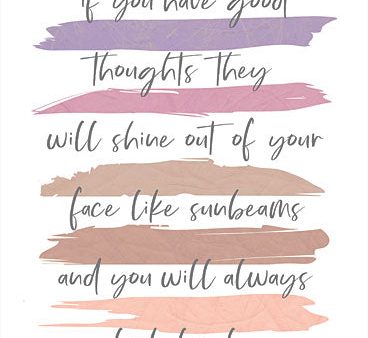 if you have good
thoughts they
will shine out of your
face like sunbeams
and you will always